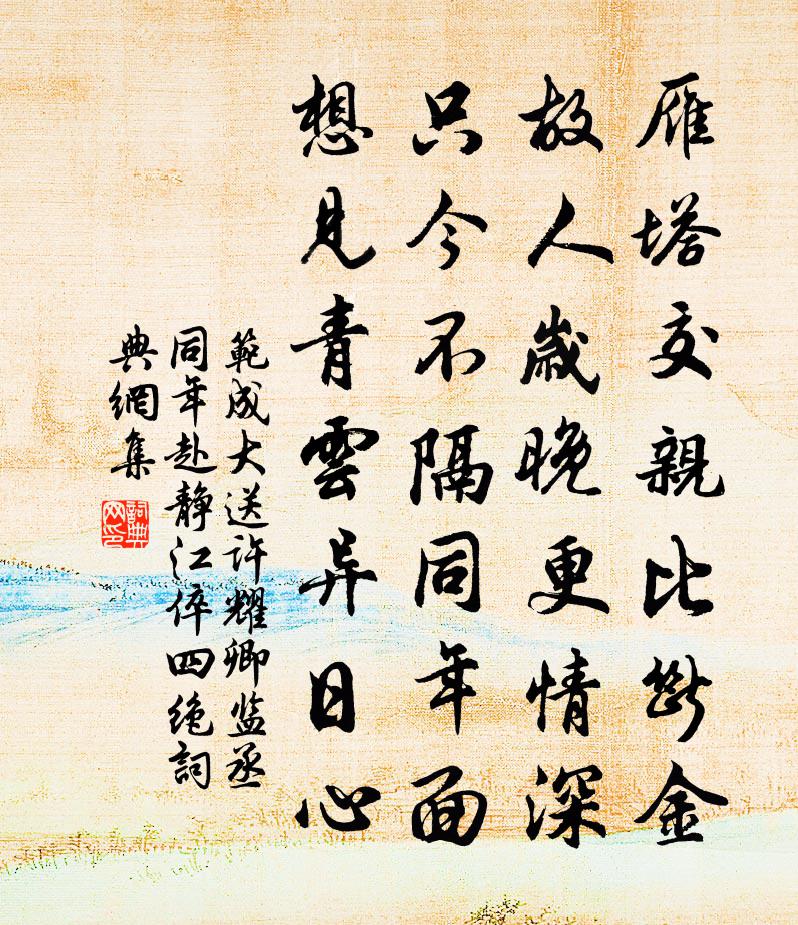 雁塔交親比斷金
故人歲晚更情深
只今不隔同年面
想見青雲异日心
範成大送许耀卿监丞
同年赴静江倅四绝詞
典網集
詞典網印